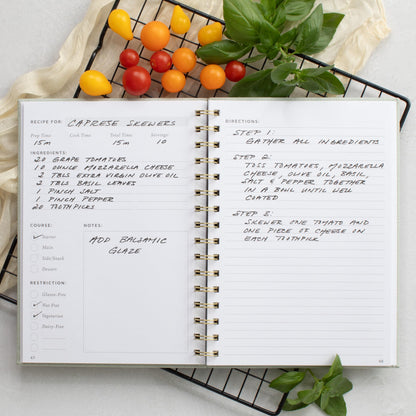 RECIPE FOR: CAPRESE SKEWERS
Prep Time Cook Time Total Time Servings
15m 15m 10
INGREDIENTS:
20 GRAPE TOMATOES
10 OUNCE MOZZARELLA CHEESE
2 TBLS EXTRA VIRGIN OLIVE OIL
2 TBLS BASIL LEAVES
1 PINCH SALT
1 PINCH PEPPER
20 TOOTHPICKS
COURSE:
Starter
Main
Side/Snack
Dessert
RESTRICTION:
Gluten-Free
Nut-Free
Vegetarian
Dairy-Free
NOTES:
ADD BALSAMIC
GLAZE
67
DIRECTIONS:
STEP 1:
GATHER ALL INGREDIENTS
STEP 2:
TOSS TOMATOES, MOZZARELLA
CHEESE, OLIVE OIL, BASIL,
SALT & PEPPER TOGETHER
IN A BOWL UNTIL WELL
COATED
STEP 3:
SKEWER ONE TOMATO AND
ONE PIECE OF CHEESE ON
EACH TOOTHPICK
68